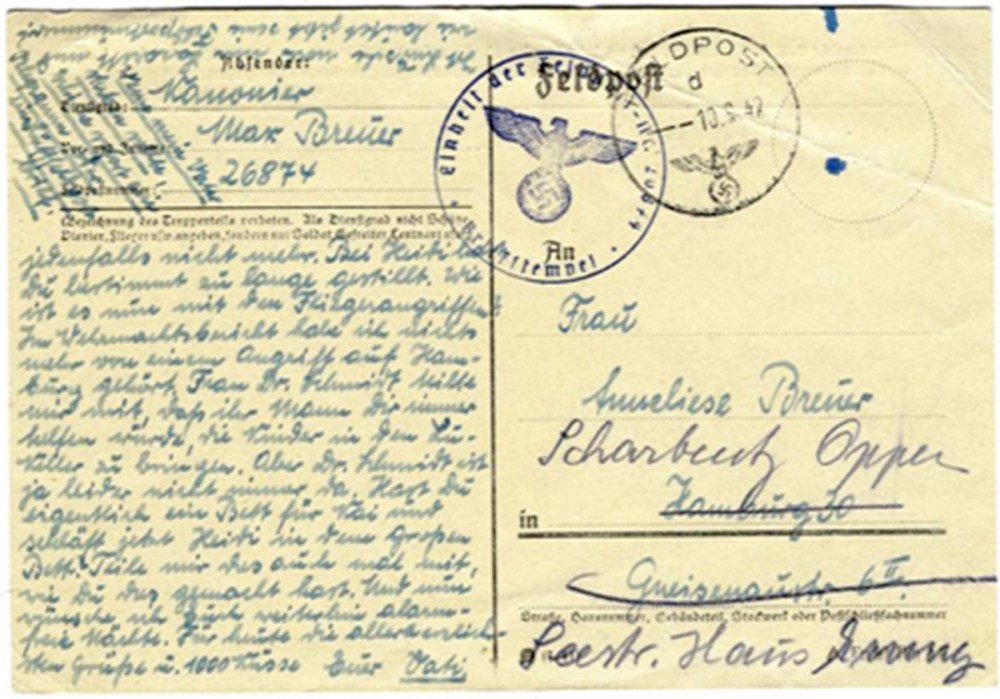 Absender:
Kanonier
Max Breuer
26874
(Bezeichnung des Truppenteils verboten. Als Dienstgrad nicht
Pionier, Flieger usw. angeben, sondern nur Soldat Gefreiter Leutnant
jedenfalls nicht mehr. Bei Heidi
Du bestimmt zu lange gestillt. Wie
ist es nun mit den Fliegerangriffen?
Im Wehrmachtsbericht habe ich nichts
mehr von einem Angriff auf Ham-
burg gehört. Frau Dr. Schmidt teilte
mir mit, daß ihr Mann Dir immer
helfen würde, die Kinder in den Lu-
Keller zu bringen. Aber Dr. Schmidt ist
ja leider nicht immer da. Hast Du
eigentlich ein Bett für Kai und
schläft jetzt Heidi in dem Großen
Bett. Teile mir das auch mal mit,
wie Du das gemacht hast. Und nun
wünsche ich Euch weiterhin alarm-
freie Nächte. Für heute die allerherzlich-
sten Grüße u. 1000 Küsse Euer Vati
Feldpost
FELDPOST
d
10.6.42
Einheit der
Briefstempel
An
Frau
Anneliese Breuer
Scharbeutz
in Hamburg 30
Gneisenaustr. 6 II.
Straße, Hausnummer, Gebäudeteil, Stockwerk oder Postschließfachnummer
Seestr. Haus